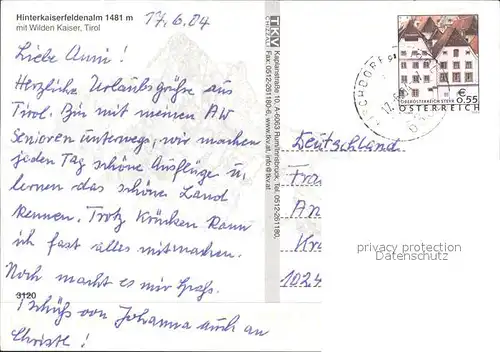 Hinterkaiserfeldenalm 1481 m
mit Wilden Kaiser, Tirol
17.6.04
Liebe Anni!
Herzliche Urlaubsgrüße aus
Tirol. Bin mit meinen AW
Senioren unterwegs, wir machen
jeden Tag schöne Ausflüge u.
lernen das schöne Land
kennen. Trotz Krücken kann
ich fast alles mitmachen.
Noch macht es mir Spaß.
Tschüß von Johanna auch an
Christl!
3120
TKV
Kaplanstraße 10, A-6063 Rum/Innsbruck, Tel. 0512-261180,
Fax: 0512-261180-6, www.tkv.at, info@tkv.at
OBERÖSTERREICH STEYR
€ 0.55
ÖSTERREICH
Deutschland
Fra
An
Kra
1024
privacy protection
Datenschutz